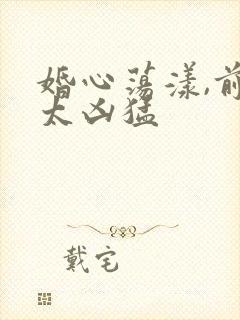 婚心荡漾,前
太凶猛
戴宅